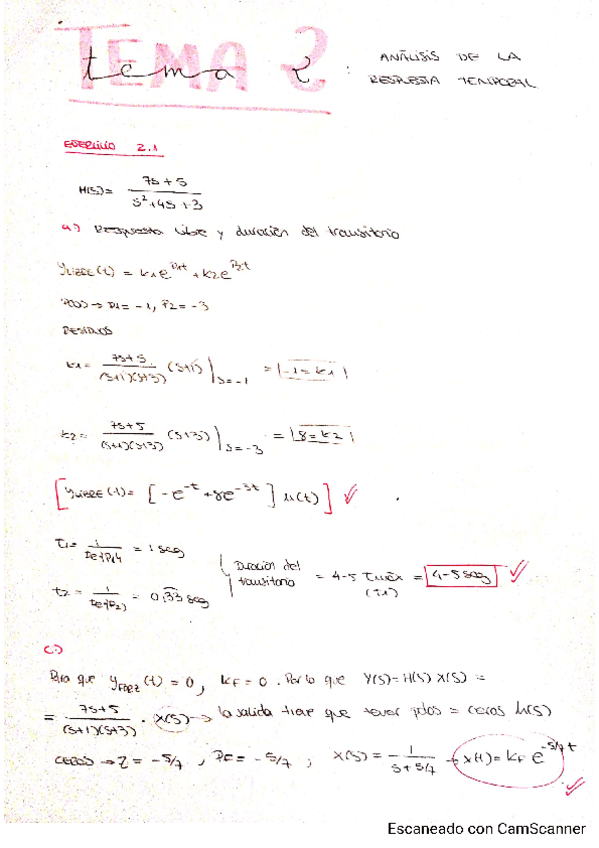 TEMA 2
tema 2 : ANÁLISIS DE LA
RESPUESTA TEMPORAL
EJERCICIO 2.1
H(s) = 7s+5 / s²+4s+3
a) Respuesta libre y duración del transitorio
yLIBRE(t) = k1e^p1t + k2e^p2t
POLOS → p1 = -1, p2 = -3
RESIDUOS
k1 = 7s+5 / (s+1)(s+3) (s+1) |s=-1 = |-1 = k1|
k2 = 7s+5 / (s+1)(s+3) (s+3) |s=-3 = |8 = k2|
[yLIBRE(t) = [-e^-t + 8e^-3t] u(t)] ✓
τ1 = 1 / Re{p1} = 1 seg
t2 = 1 / Re{p2} = 0,33 seg
Duración del transitorio = 4-5 τmáx (τ1) = 4-5 seg ✓
c)
Para que yFORZ(t) = 0, kF = 0. Por lo que Y(s) = H(s) X(s) =
= 7s+5 / (s+1)(s+3) · X(s) → la salida tiene que tener polos = ceros h(s)
CEROS → Z = -5/7, PF = -5/7; X(s) = 1 / s+5/7 → x(t) = kF e^-5/7 t ✓
Escaneado con CamScanner